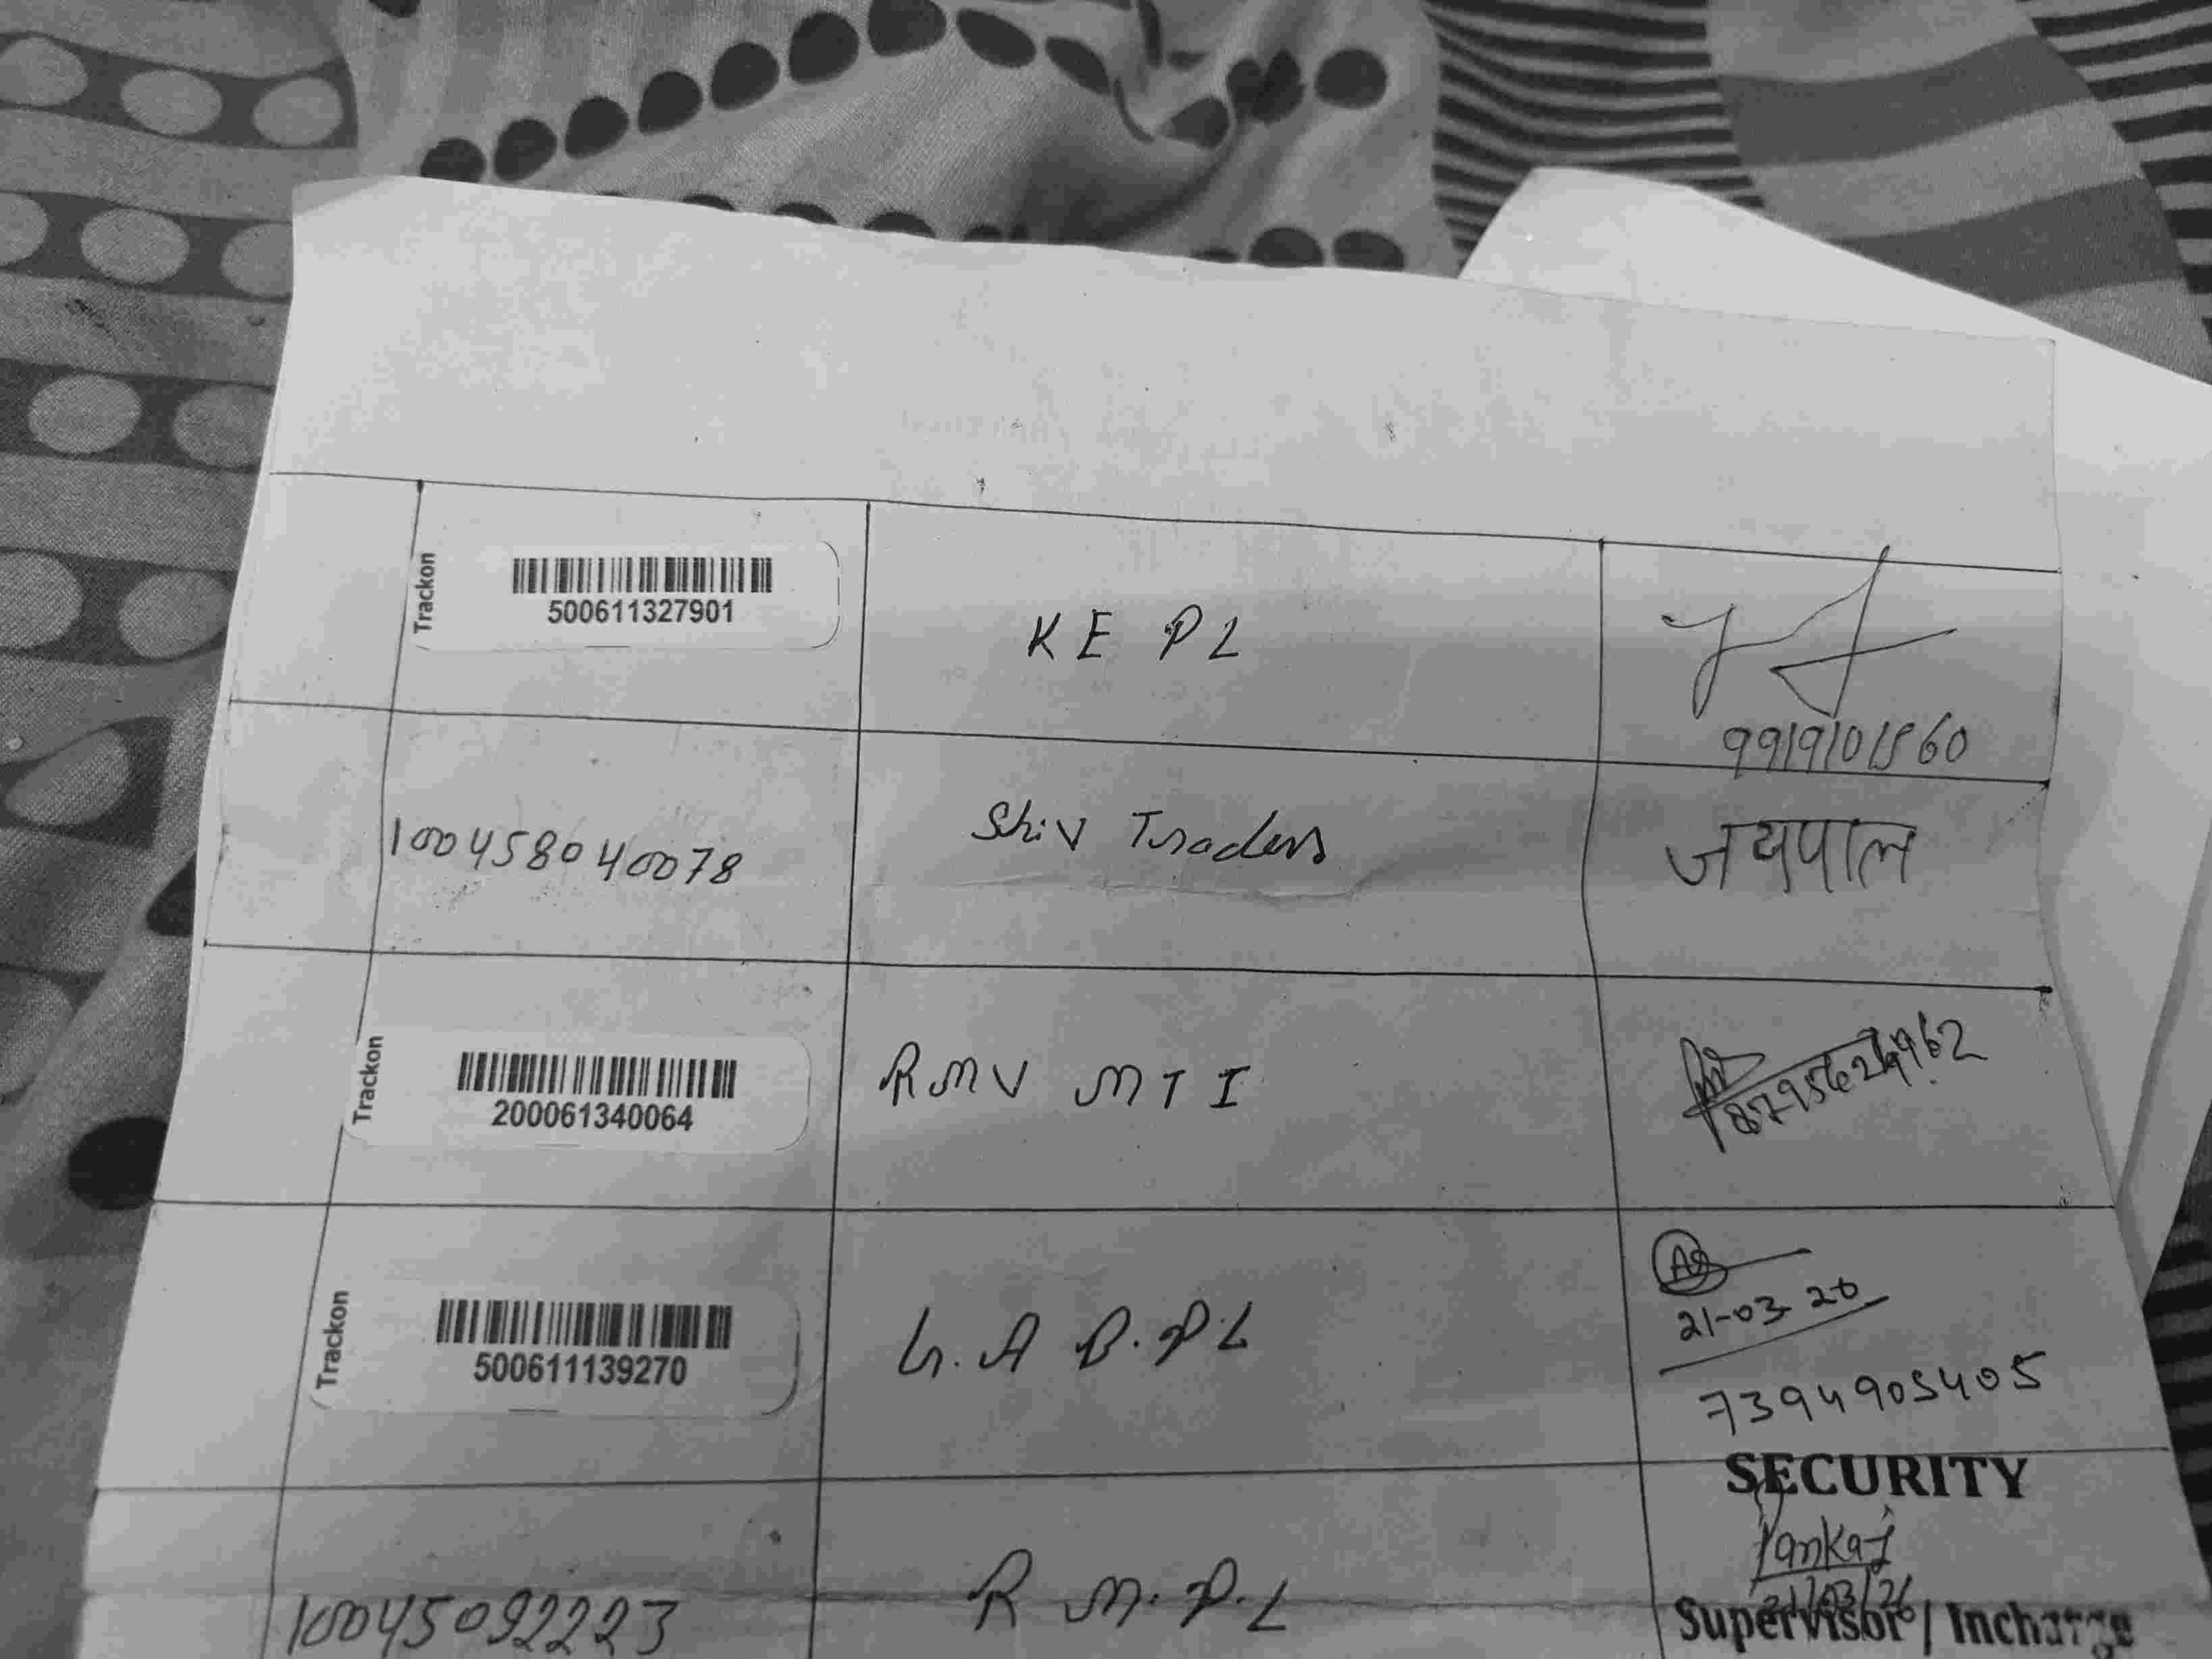 Trackon
500611327901
K E P L
9919101560
100458040078
Shiv Traders
जयपाल
Trackon
200061340064
RMV MTI
Trackon
500611139270
G.A B.P.L
21-03 26
7394905405
10045092223
R M.P.L
SECURITY
Pankaj
21/03/26
Supervisor / Incharge